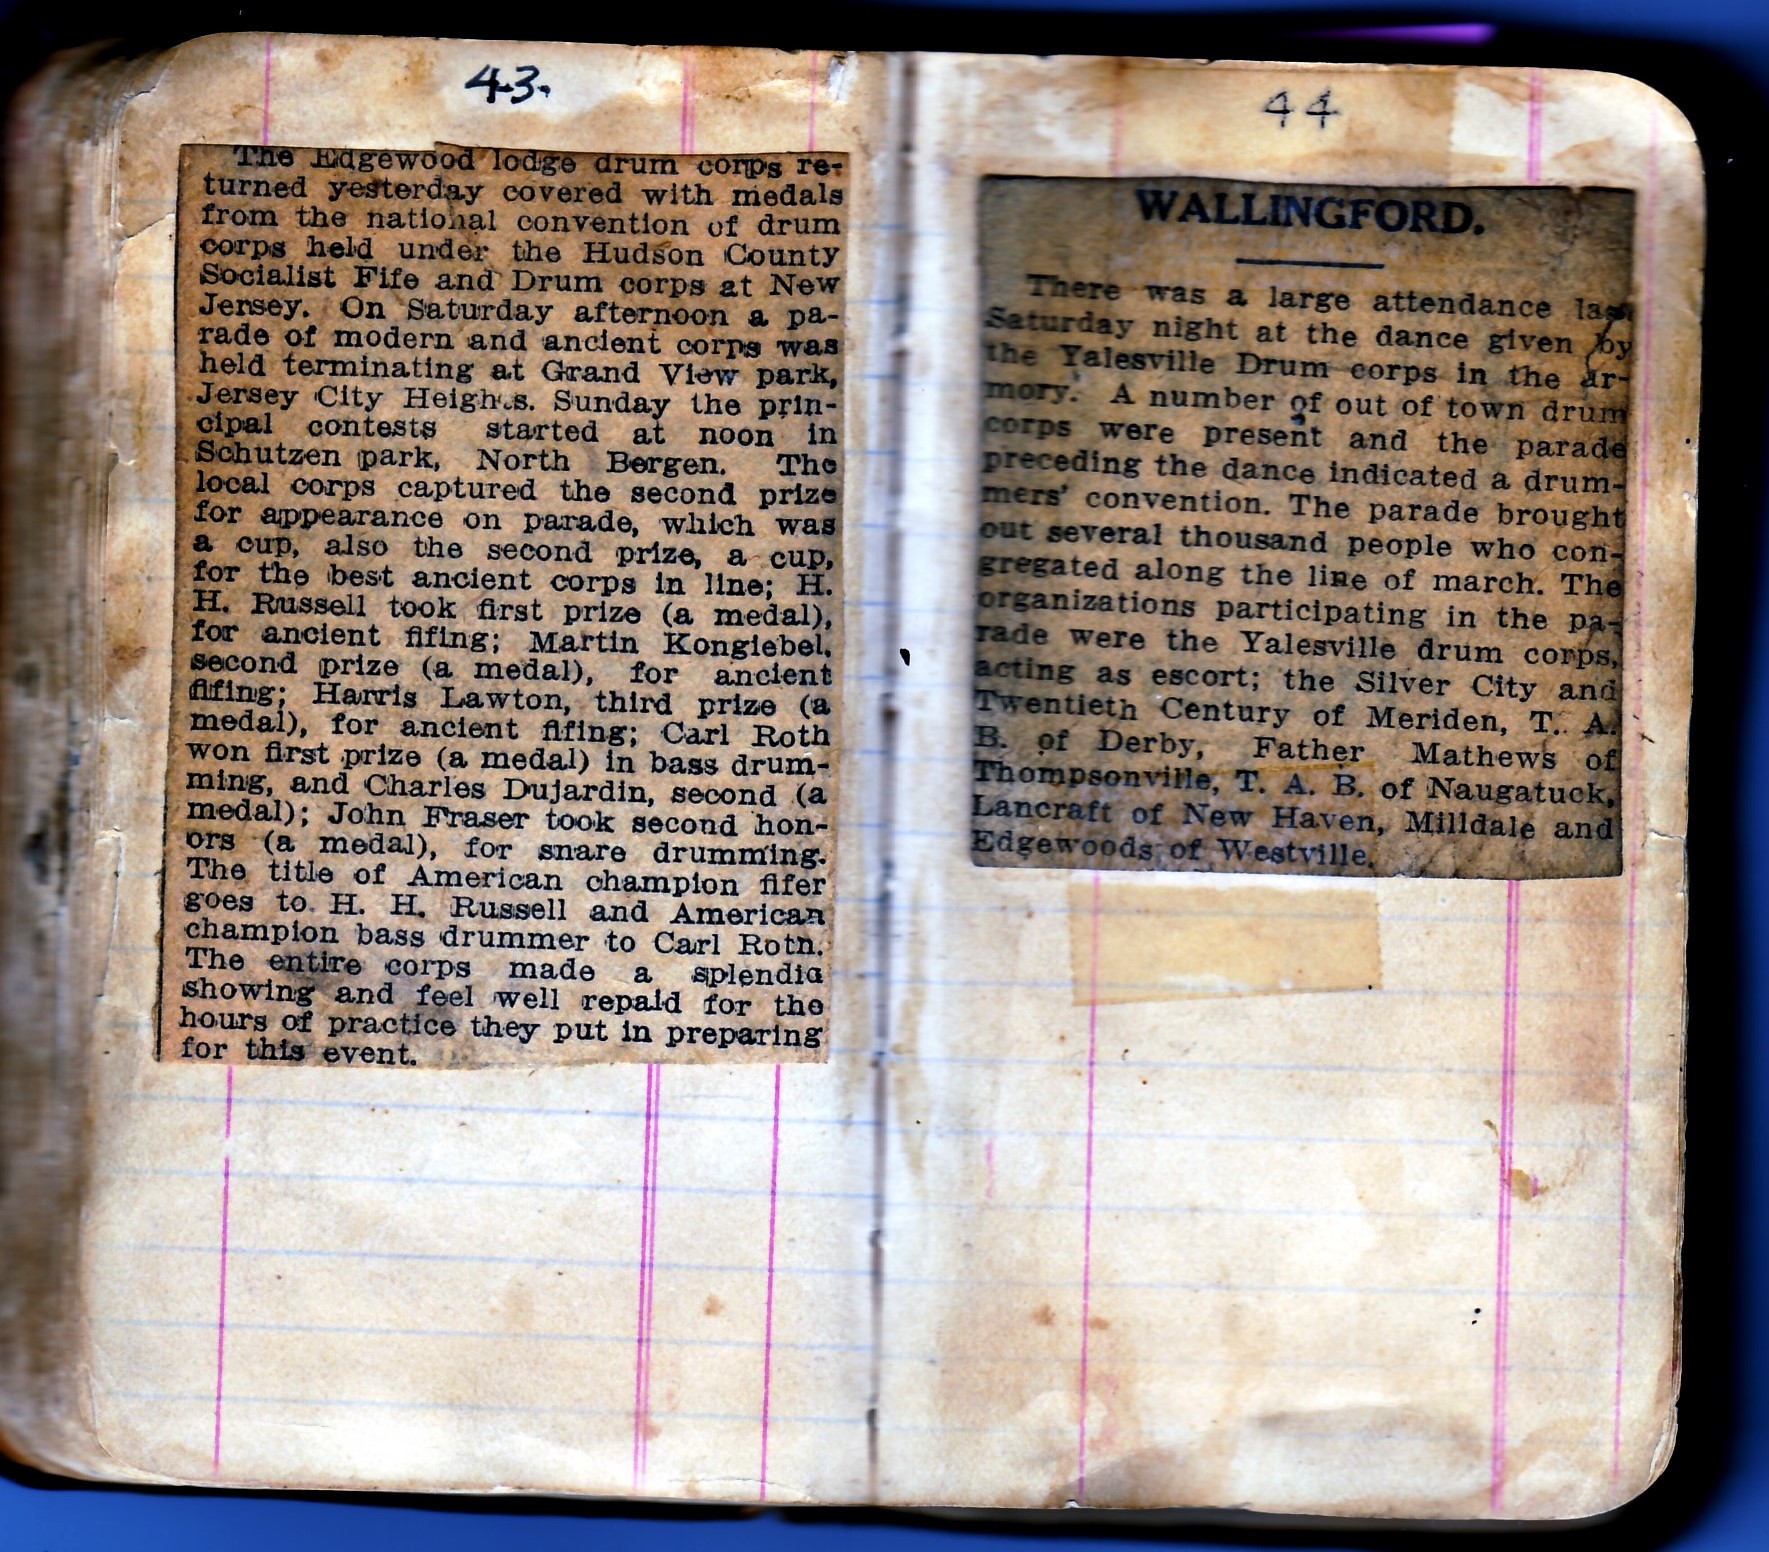 43.
The Edgewood lodge drum corps re-
turned yesterday covered with medals
from the national convention of drum
corps held under the Hudson County
Socialist Fife and Drum corps at New
Jersey. On Saturday afternoon a pa-
rade of modern and ancient corps was
held terminating at Grand View park,
Jersey City Heights. Sunday the prin-
cipal contests started at noon in
Schutzen park, North Bergen. The
local corps captured the second prize
for appearance on parade, which was
a cup, also the second prize, a cup,
for the best ancient corps in line; H.
H. Russell took first prize (a medal),
for ancient fifing; Martin Kongiebel,
second prize (a medal), for ancient
fifing; Harris Lawton, third prize (a
medal), for ancient fifing; Carl Roth
won first prize (a medal) in bass drum-
ming, and Charles Dujardin, second (a
medal); John Fraser took second hon-
ors (a medal), for snare drumming.
The title of American champion fifer
goes to H. H. Russell and American
champion bass drummer to Carl Roth.
The entire corps made a splendid
showing and feel well repaid for the
hours of practice they put in preparing
for this event.
44
WALLINGFORD.
There was a large attendance last
Saturday night at the dance given by
the Yalesville Drum corps in the ar-
mory. A number of out of town drum
corps were present and the parade
preceding the dance indicated a drum-
mers' convention. The parade brought
out several thousand people who con-
gregated along the line of march. The
organizations participating in the pa-
rade were the Yalesville drum corps,
acting as escort; the Silver City and
Twentieth Century of Meriden, T. A.
B. of Derby, Father Mathews of
Thompsonville, T. A. B. of Naugatuck,
Lancraft of New Haven, Milldale and
Edgewoods of Westville.